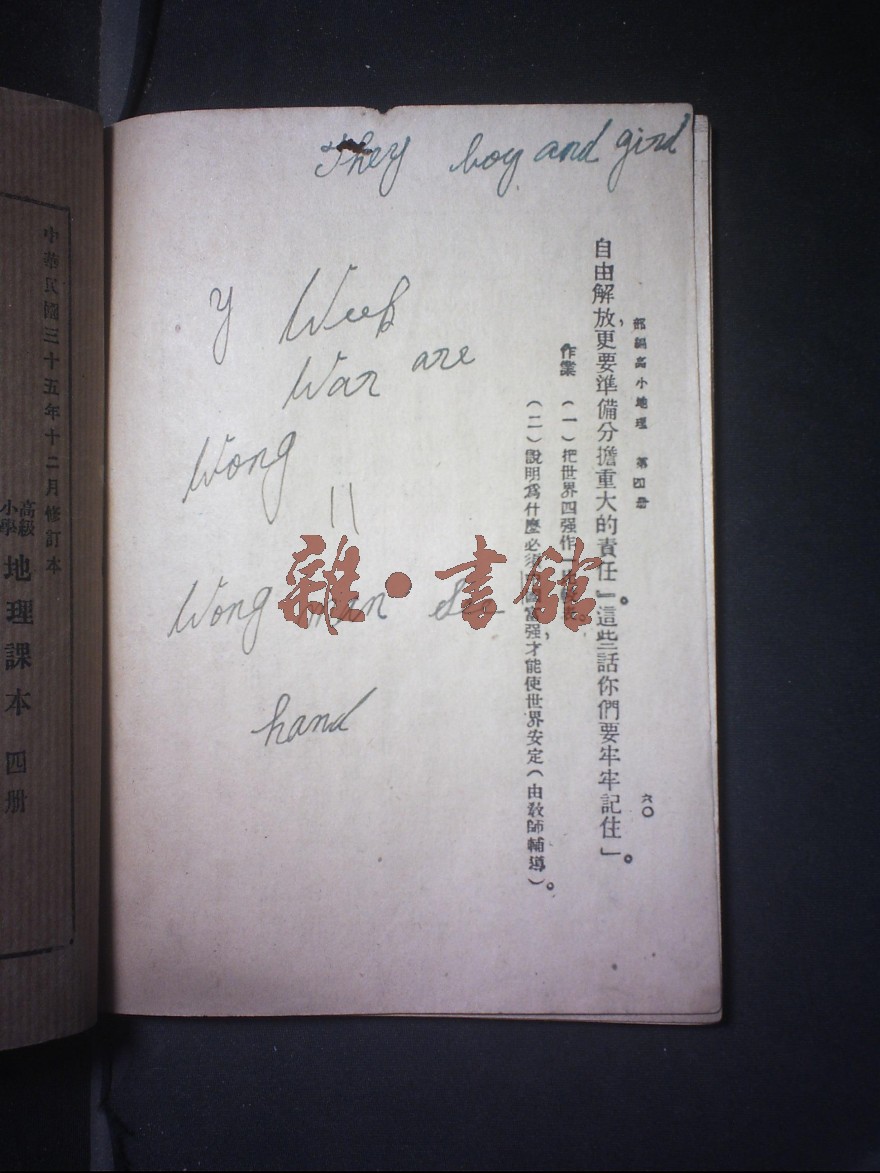 They boy and gird
部編高小地理 第四册
六〇
自由解放，更要準備分擔重大的責任」。這些話你們要牢牢記住」。
作業 （一）把世界四强作一比較表。
（二）說明爲什麽必須 國富强，才能使世界安定（由敎師輔導）。
y Week
War are
Wong
Wong man
hand
雜·書館
中華民國三十五年十二月修訂本
高級小學 地理課本 四册